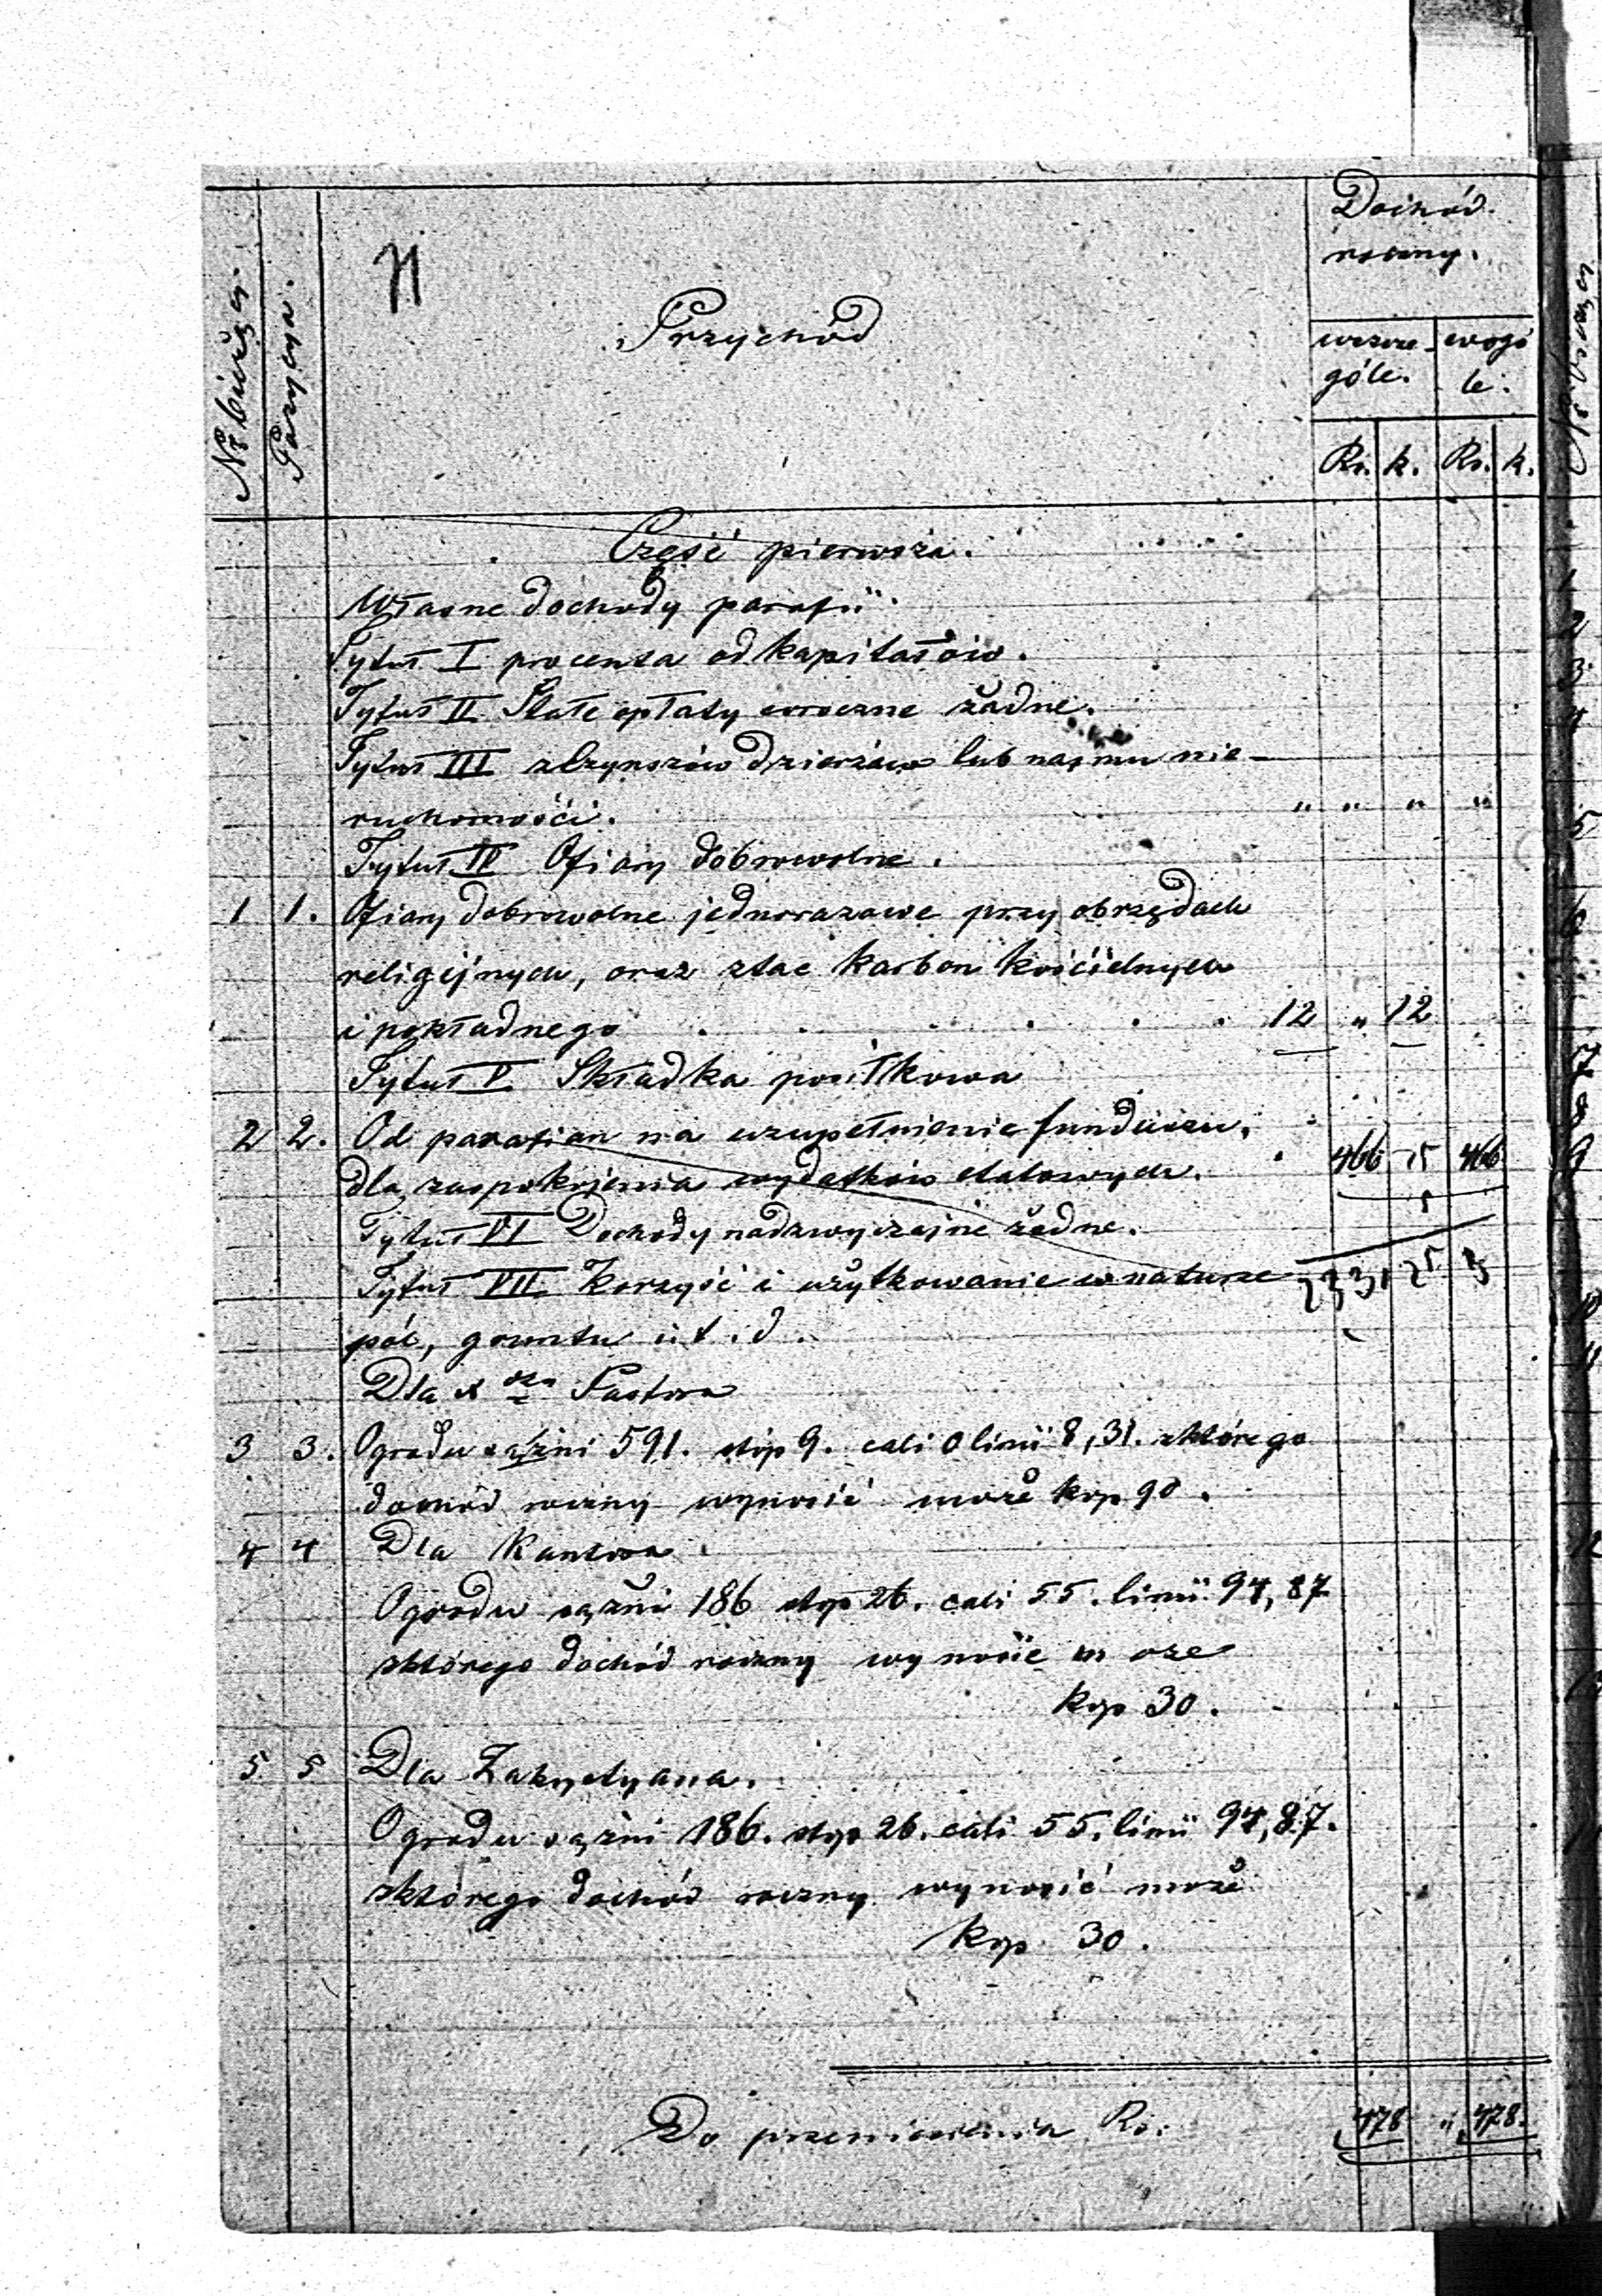 Dochód
roczny.
Przychód
No bieżący.
Pozycya.
wszcze- wogó
góle. le.
Rs. k. Rs. k.
Część pierwsza.
Własne dochody parafii
Tytuł I procenta od kapitałów.
Tytuł II Stałe opłaty wroczne żadne.
Tytuł III z Czynszów dzierżaw lub najmu nie-
ruchomości. " " " "
Tytuł IV Ofiary dobrowolne.
1 1. Ofiary dobrowolne jednorazowe przy obrzędach
religijnych, oraz z tac karbon kościelnych
i pokładnego . . . . . . 12 " 12
Tytuł V Składka posiłkowa
2 2. Od parafian na uzupełnienie funduszu,
dla zaspokojenia wydatków etatowych. 466 466
Tytuł VI Dochody nadzwyczajne żadne.
Tytuł VII Korzyść i użytkowanie w naturze
pól, gruntu i t. d.
Dla Pastora
3 3. Ogrodu sążni 591. stóp 9. cali 0 linii 8,31. z którego
dochód roczny wynosić może kop 90.
4 4 Dla Kantora.
Ogrodu sążni 186 stóp 26. cali 55. linii 94,87
z którego dochód roczny wynosić może
kop 30.
5 5 Dla Zakrystyana.
Ogrodu sążni 186. stóp 26. cali 55. linii 94,87.
z którego dochód roczny wynosić może
kop 30.
Do przeniesienia Rs. 478 " 478.